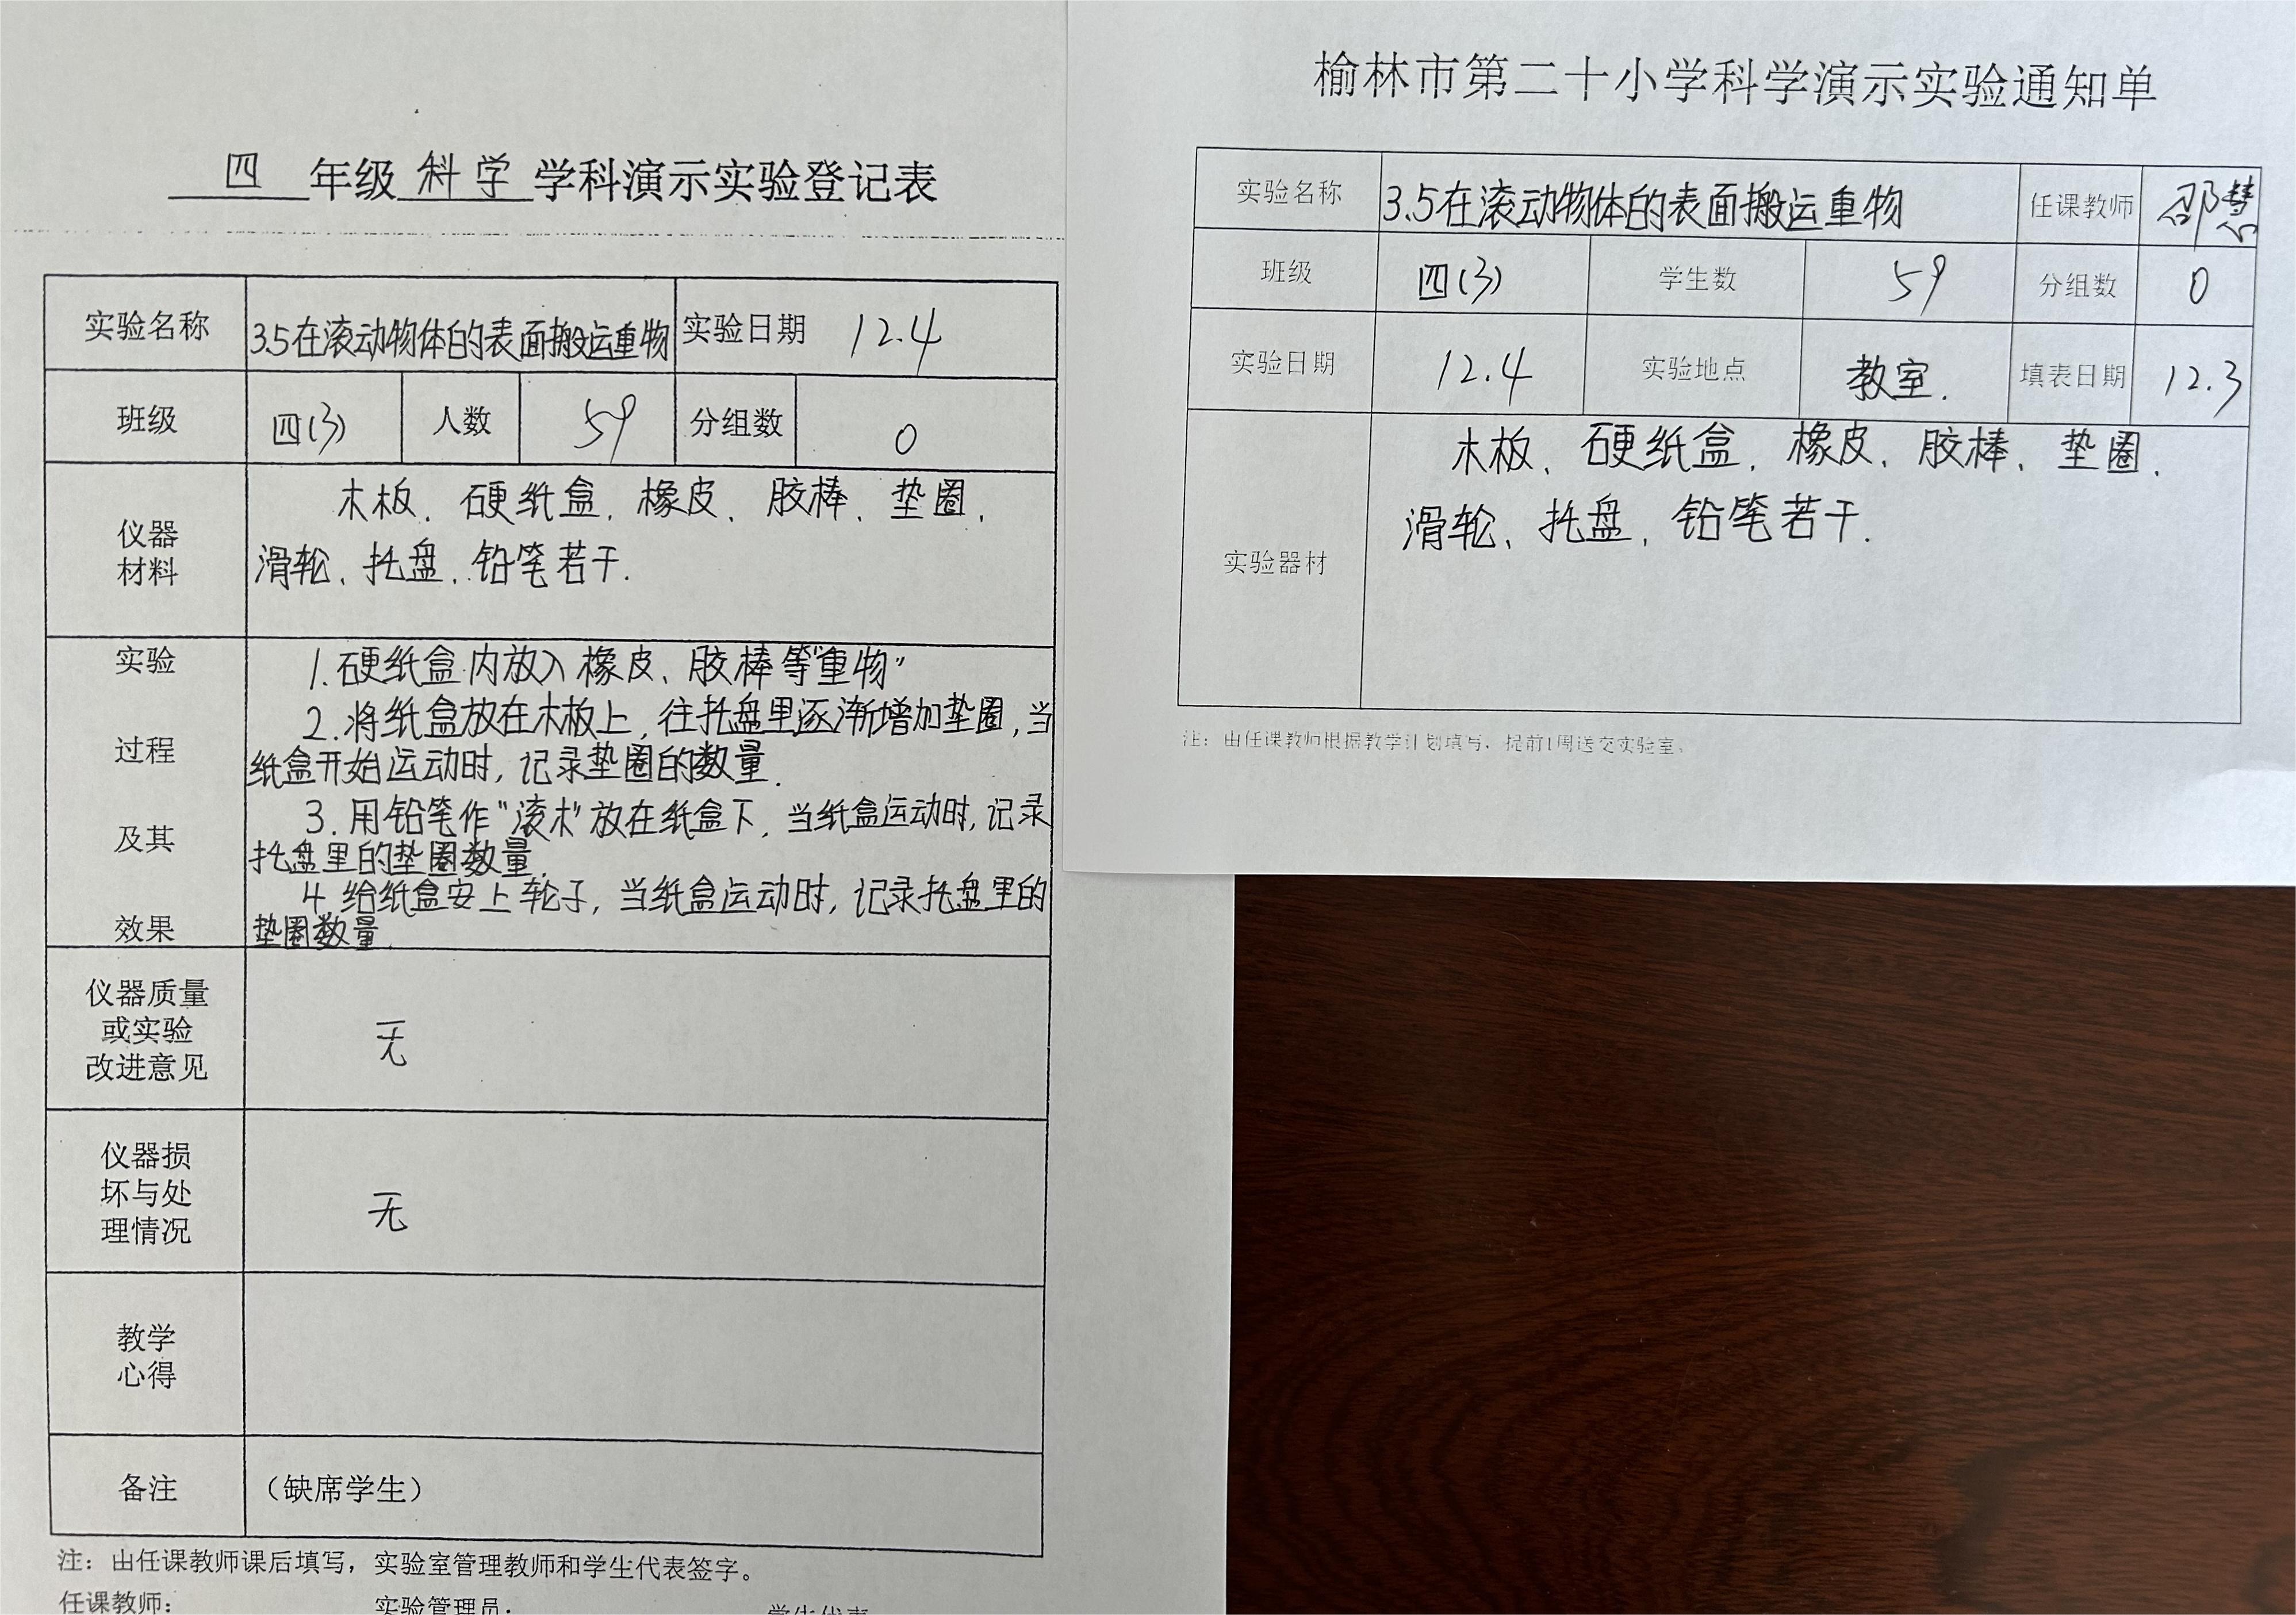 四 年级 科学 学科演示实验登记表
实验名称 3.5在滚动物体的表面搬运重物 实验日期 12.4
班级 四(3) 人数 59 分组数 0
仪器
材料
木板、硬纸盒、橡皮、胶棒、垫圈、
滑轮、托盘、铅笔若干.
实验
过程
及其
效果
1.硬纸盒内放入橡皮、胶棒等"重物"
2.将纸盒放在木板上,往托盘里逐渐增加垫圈,当
纸盒开始运动时,记录垫圈的数量.
3.用铅笔作"滚木"放在纸盒下,当纸盒运动时,记录
托盘里的垫圈数量.
4.给纸盒安上轮子,当纸盒运动时,记录托盘里的
垫圈数量.
仪器质量
或实验
改进意见
无
仪器损
坏与处
理情况
无
教学
心得
备注 （缺席学生）
注：由任课教师课后填写，实验室管理教师和学生代表签字。
任课教师： 实验管理员： 学生代表
榆林市第二十小学科学演示实验通知单
实验名称 3.5在滚动物体的表面搬运重物 任课教师 邵慧
班级 四(3) 学生数 59 分组数 0
实验日期 12.4 实验地点 教室. 填表日期 12.3
实验器材
木板、硬纸盒、橡皮、胶棒、垫圈、
滑轮、托盘、铅笔若干.
注：由任课教师根据教学计划填写，提前1周送交实验室。